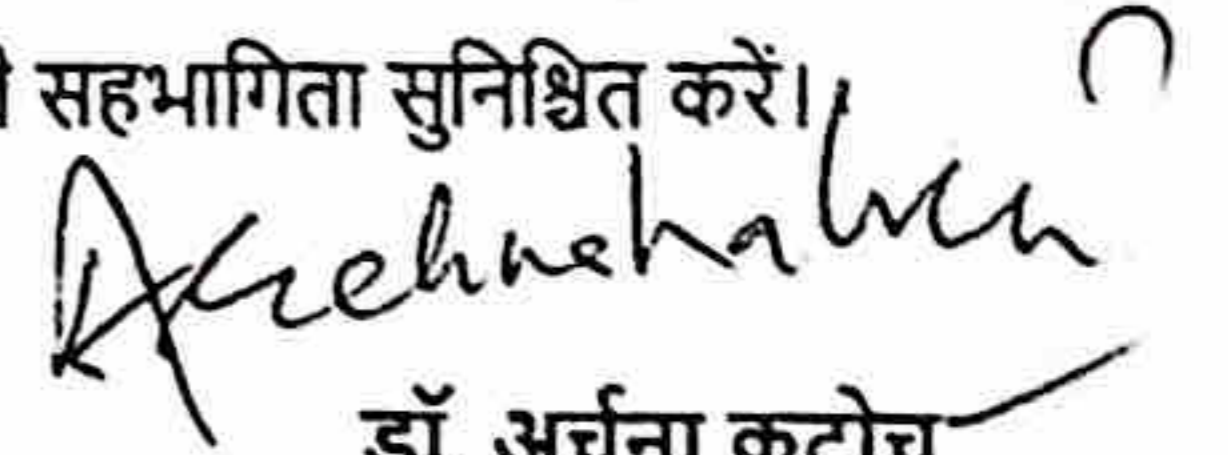 सहभागिता सुनिश्चित करें।
डॉ. अर्चना कटोच